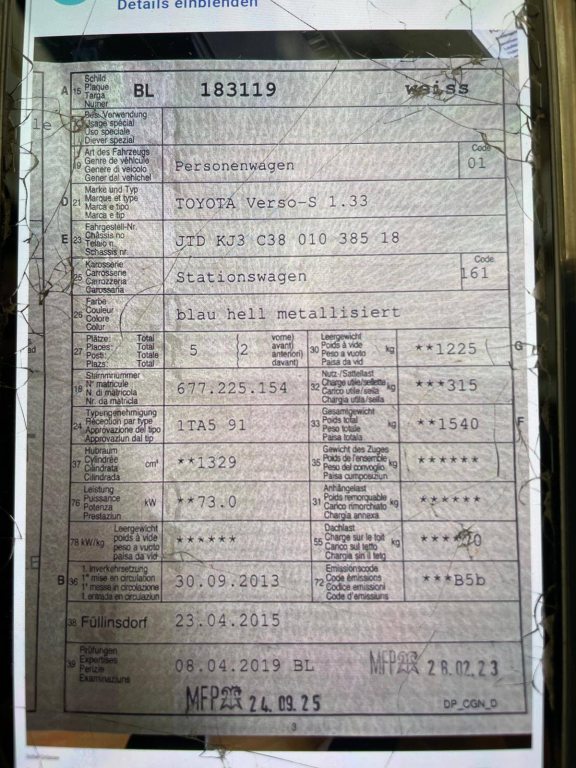 Details einblenden
A 15 Schild
Plaque
Targa
Numer
BL 183119 weiss
Bes. Verwendung
Usage spécial
Uso speciale
Diever spezial
Art des Fahrzeugs
Genre de véhicule
Genere di veicolo
Gener dal vehichel
Personenwagen
Code
01
D 21 Marke und Typ
Marque et type
Marca e tipo
Marca e tip
TOYOTA Verso-S 1.33
E 23 Fahrgestell-Nr.
Châssis no
Telaio n.
Schassis nr.
JTD KJ3 C38 010 385 18
25 Karosserie
Carrosserie
Carrozzeria
Carossaria
Stationswagen
Code
161
26 Farbe
Couleur
Colore
Colur
blau hell metallisiert
27 Plätze: Total
Places: Total
Posti: Totale
Plazs: Total
5 (2 vorne)
avant)
anteriori)
davant)
30 Leergewicht
Poids à vide
Peso a vuoto
Paisa da vid
kg
**1225 G
18 Stammnummer
N° matricule
N. di matricola
Nr. da matricla
677.225.154
32 Nutz-/Sattellast
Charge utile/sellette
Carico utile/sella
Chargia utila/sella
kg
***315
24 Typengenehmigung
Réception par type
Approvazione del tipo
Approvaziun dal tip
1TA5 91
33 Gesamtgewicht
Poids total
Peso totale
Paisa totala
kg
**1540 F
37 Hubraum
Cylindrée
Cilindrata
Cilindrada
cm³
**1329
35 Gewicht des Zuges
Poids de l'ensemble
Peso del convoglio
Paisa cumposiziun
kg
******
76 Leistung
Puissance
Potenza
Prestaziun
kW
**73.0
31 Anhängelast
Poids remorquable
Carico rimorchiato
Chargia annexa
kg
******
78 kW/kg Leergewicht
poids à vide
peso a vuoto
paisa da vid
******
55 Dachlast
Charge sur le toit
Carico sul tetto
Chargia sin il tetg
kg
B 36 1. Inverkehrsetzung
1re mise en circulation
1a messa in circolazione
1. entrada en circulaziun
30.09.2013
72 Emissionscode
Code émissions
Codice emissioni
Code d'emissiuns
***B5b
38 Füllinsdorf 23.04.2015
39 Prüfungen
Expertises
Perizie
Examinaziuns
08.04.2019 BL MFP 28.02.23
MFP 24.09.25
DP_CGN_D
3